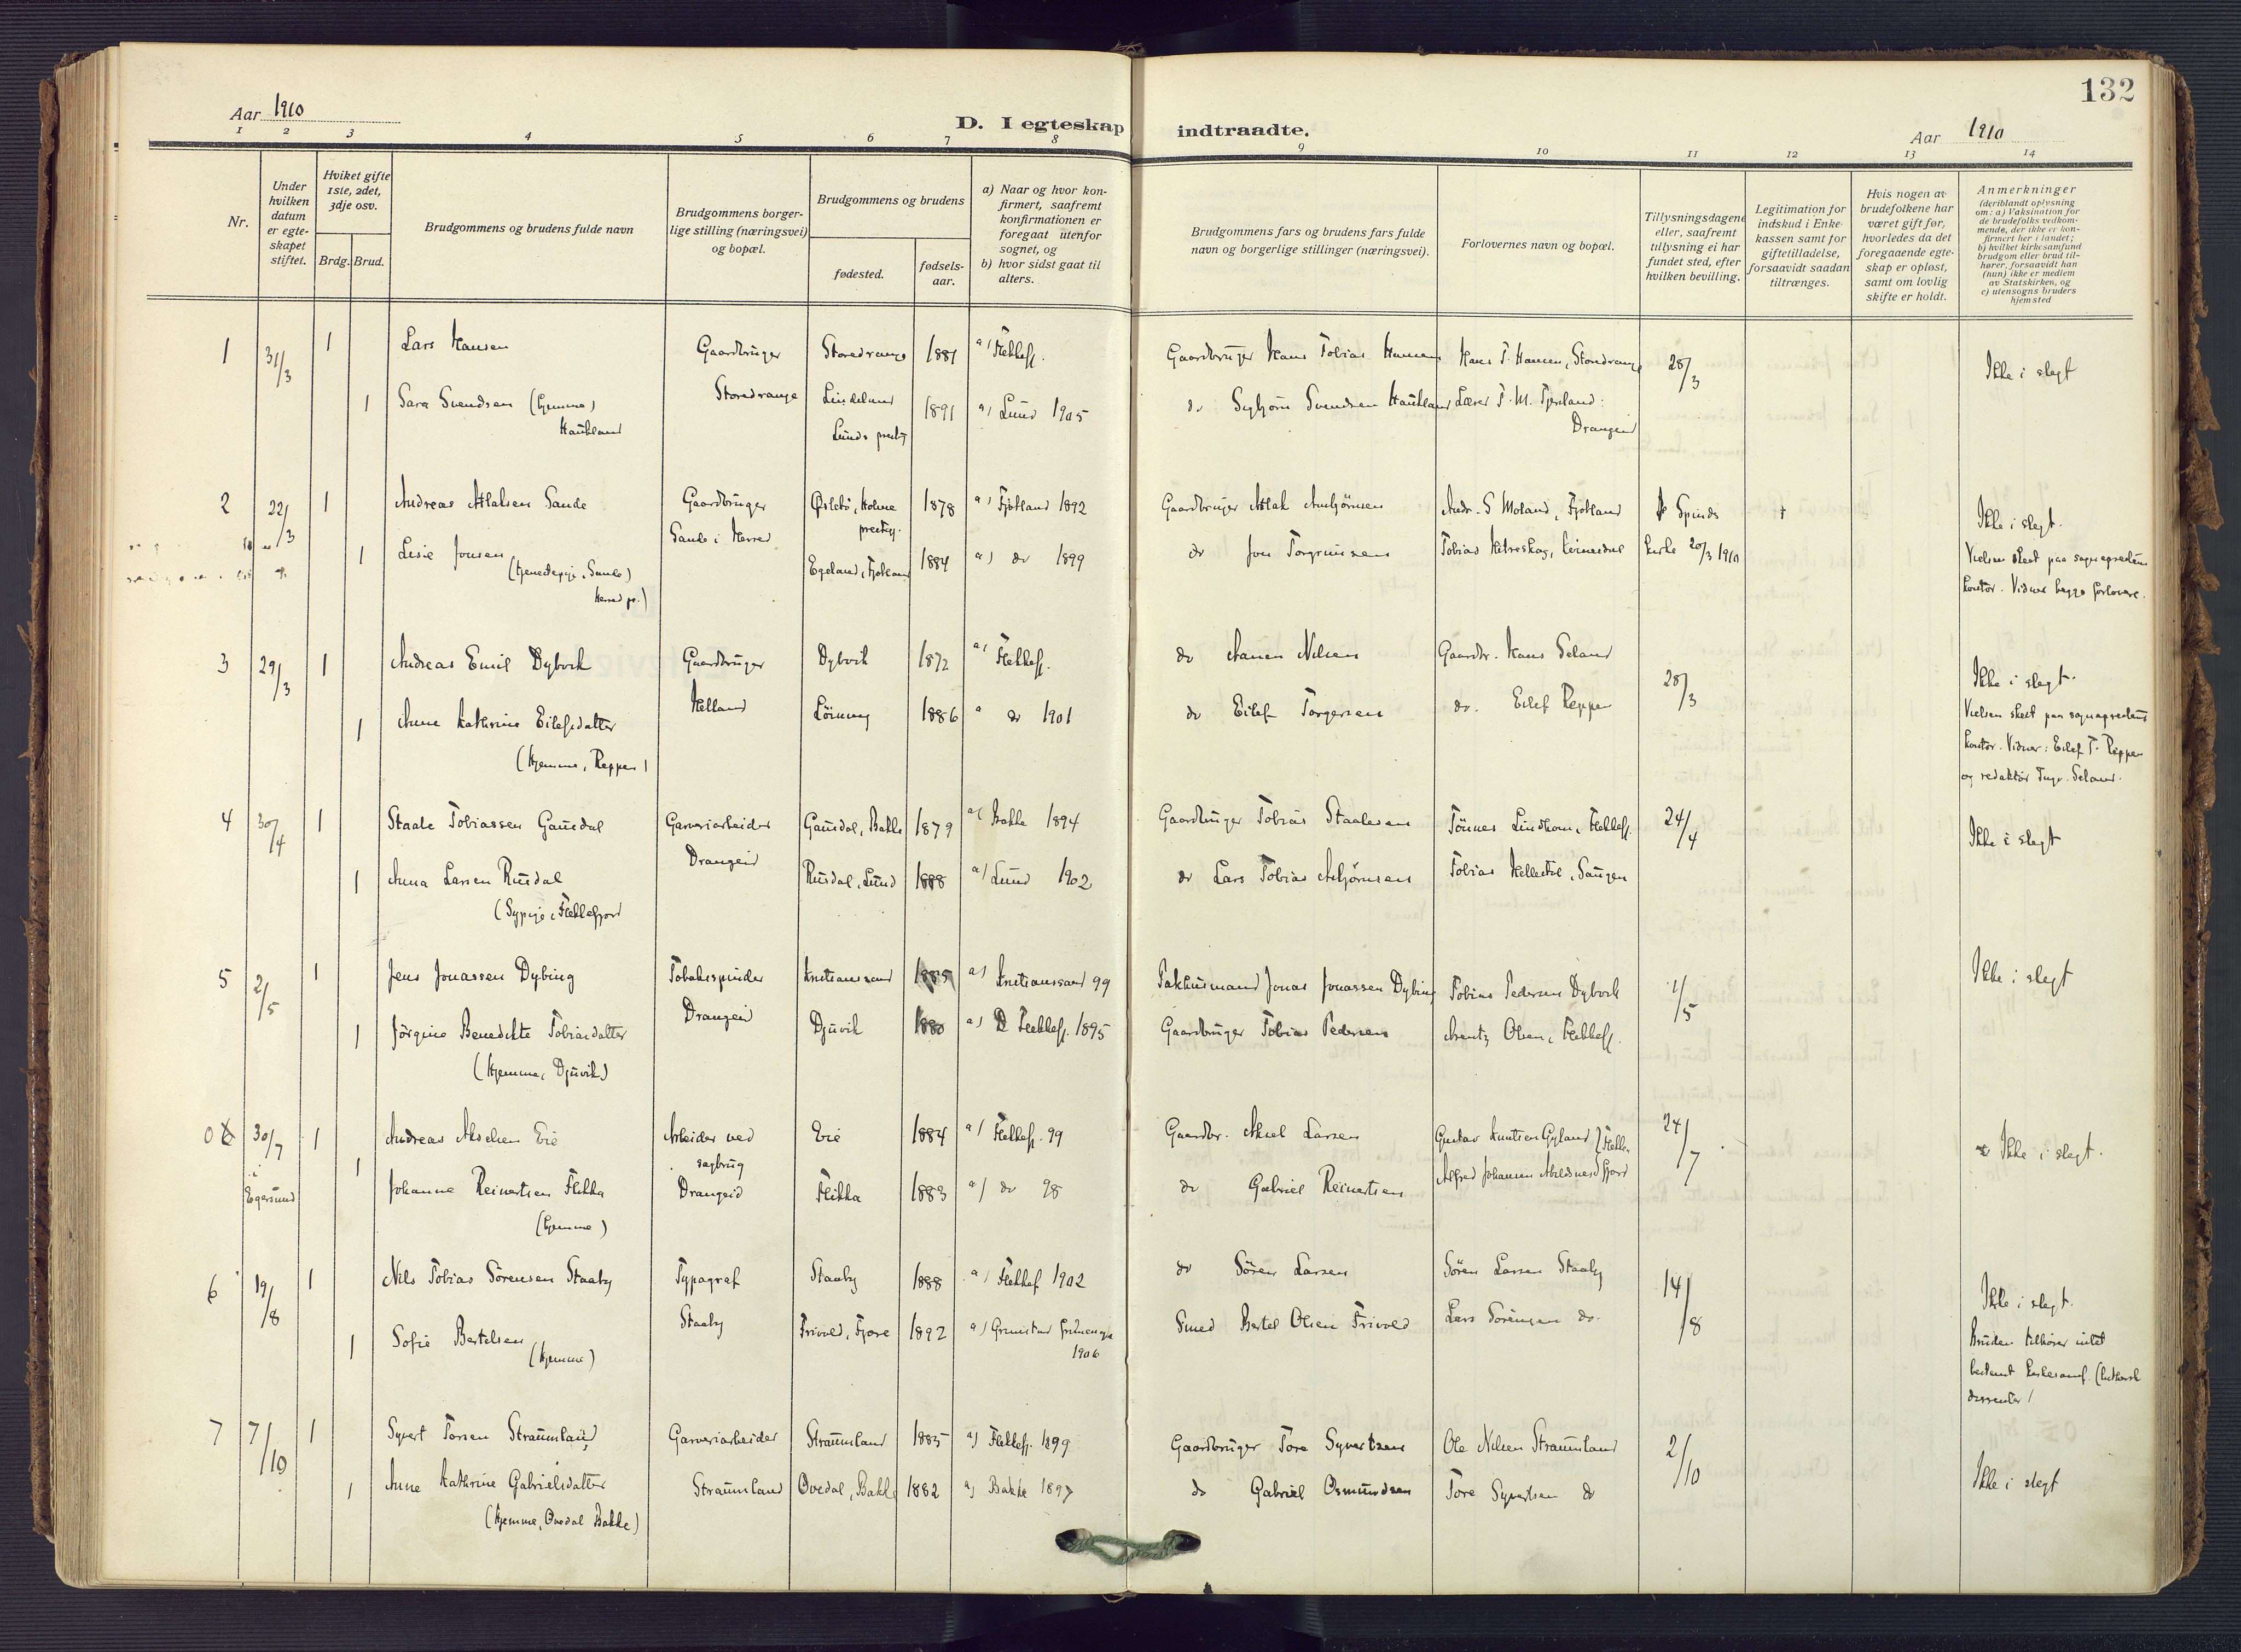 132
Aar 1910
D. I egteskap indtraadte.
Aar 1910
1 2 3 4 5 6 7 8 9 10 11 12 13 14
Nr.
Under hvilken datum er egteskapet stiftet.
Hviket gifte 1ste, 2det, 3dje osv.
Brdg. Brud.
Brudgommens og brudens fulde navn
Brudgommens borgerlige stilling (næringsvei) og bopæl.
Brudgommens og brudens
fødested.
fødselsaar.
a) Naar og hvor konfirmert, saafremt konfirmationen er foregaat utenfor sognet, og
b) hvor sidst gaat til alters.
Brudgommens fars og brudens fars fulde navn og borgerlige stillinger (næringsvei).
Forlovernes navn og bopæl.
Tillysningsdagene eller, saafremt tillysning ei har fundet sted, efter hvilken bevilling.
Legitimation for indskud i Enkekassen samt for giftetilladelse, forsaavidt saadan tiltrænges.
Hvis nogen av brudefolkene har været gift før, hvorledes da det foregaaende egteskap er opløst, samt om lovlig skifte er holdt.
Anmerkninger
(deriblandt oplysning om: a) Vaksination for de brudefolks vedkommende, der ikke er konfirmert her i landet;
b) hvilket kirkesamfund brudgom eller brud tilhører, forsaavidt han (hun) ikke er medlem av Statskirken, og
c) utensogns bruders hjemsted
1 31/3 1 Lars Hansen Gaardbruger Storedrange 1881 a) Flekkefj. Gaardbruger Hans Tobias Hansen Hans T. Hansen, Storedrange 28/3 Ikke i slegt
1 Sara Svendsen (hjemme) Storedrange Lindeland 1891 a) Lund 1905 do Sigbjörn Svendsen Haukland Lærer T. M. Fjeseland:
Haukland Lunds prestg Drangeid
2 22/3 1 Andreas Atlaksen Sande Gaardbruger Öislebö, Holme 1878 a) Fjotland 1892 Gaardbruger Atlak Ambjörnsen Andr. S Moland, Fjotland Spinds + Ikke i slegt.
prestegj.
1 Lisie Jonsen Sande i Herred Egeland, Fjotland 1884 a) do 1899 do Jon Torgrimsen Tobias kirke 20/3 1910 Vielsen skeet paa sogneprestens
(tjenestepige, Sande) kontor. Vidner begge forlovere.
Herred pr.)
3 29/3 1 Andreas Emil Dybvik Gaardbruger Dybvik 1872 a) Flekkefj. do Aanen Nilsen Gaardbr. Hans Seland 28/3 Ikke i slegt.
1 Anne Kathrine Eilefsdatter Helland Löining 1886 a do 1901 do Eilef Torgersen do. Eilef Reppen Vielsen skeet paa sogneprestens
(hjemme, Reppen) kontor. Vidner: Eilef T. Reppen
og redaktör Seland.
4 30/4 1 Staale Tobiassen Gausdal Garveriarbeider Gausdal, Bakke 1879 a) Bakke 1894 Gaardbruger Tobias Staalesen Tönnes Lindhom, Flekkefj. 24/4 Ikke i slegt
1 Anna Larsen Rusdal Drangeid Rusdal, Lund 1888 a) Lund 1902 do Lars Tobias Asbjörnsen Tobias
(Sypige, Flekkefjord
5 2/5 1 Jens Jonassen Dybing Tobakspinder Kristianssand 1885 a) Kristianssand 99 Pakhusmand Jonas Jonassen Dybing Tobias Pedersen Dybvik 1/5 Ikke i slegt
1 Jörgine Benedikte Tobiasdatter Drangeid Djuvik 1880 a) Flekkefj. 1895 Gaardbruger Tobias Pedersen Arentz Olsen, Flekkefj.
(hjemme, Djuvik)
0 30/7 1 Andreas Akselsen Eie Arbeider ved Eie 1884 a) Flekkefj. 99 Gaardbr. Aksel Larsen Gustav Knutsen Gyland } Flekke 24/7 Ikke i slegt.
i 1 sagbrug
Egersund Johanne Reinertsen Flikka Drangeid Flikka 1883 a) do 98 do Gabriel Reinertsen Alfred Johansen fjord
(hjemme)
6 19/8 1 Nils Tobias Sörensen Staaby Typograf Staaby 1888 a) Flekkef 1902 do Sören Larsen Sören Larsen Staaby 14/8 Ikke i slegt.
1 Sofie Bertelsen Staaby Frivold, Fjære 1892 a) Grimstad frimenigh Smed Bertel Olsen Frivold Lars Sörensen do. Bruden tilhörer intet
(hjemme) 1906 bestemt kirkesamf. (luthersk
dissenter)
7 7/10 1 Syvert Torsen Straumland Garveriarbeider Straumland 1885 a) Flekkefj. 1899 Gaardbruger Tore Syvertsen Ole Nilsen Straumland 2/10 Ikke i slegt
1 Anne Kathrine Gabrielsdatter Straumland Övedal, Bakke 1882 a) Bakke 1897 do Gabriel Osmundsen Tore Syvertsen do
(hjemme, Övedal Bakke)